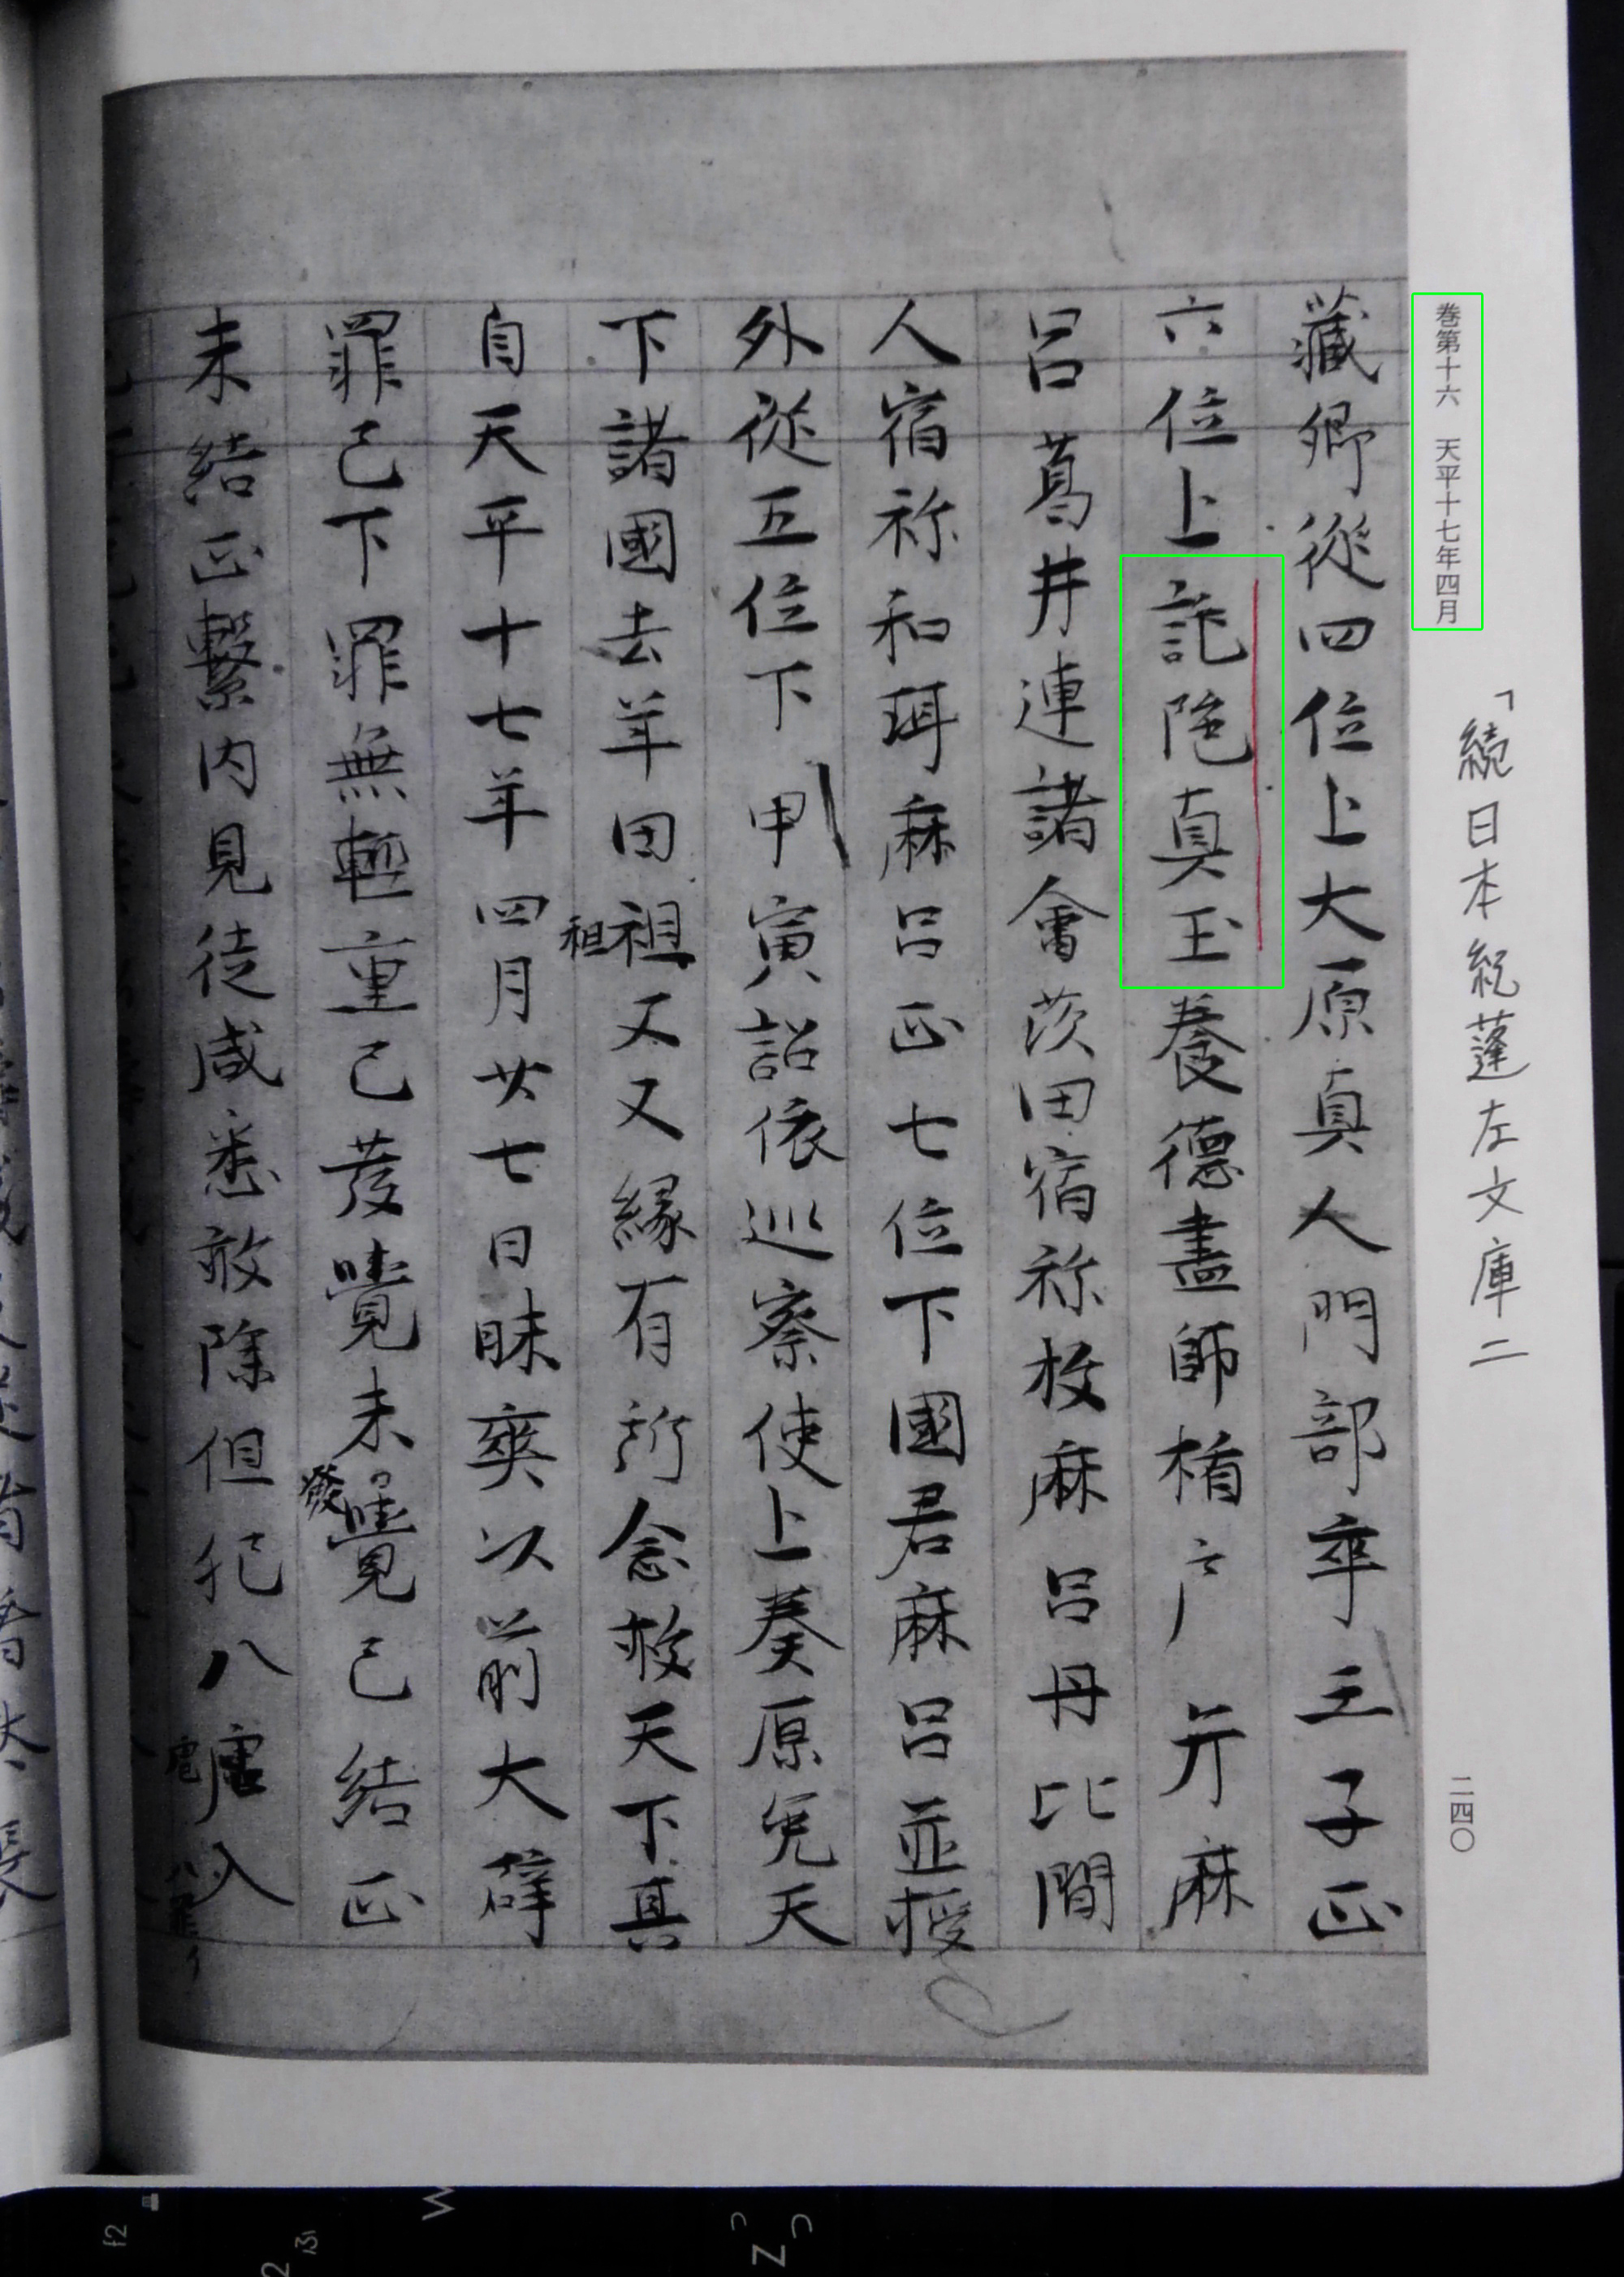 「続日本紀蓬左文庫二
巻第十六 天平十七年四月
二四〇
藏卿從四位上大原真人門部卒壬子正
六位上託陁真玉養德畫師楯戸弁麻
呂葛井連諸會茨田宿祢枚麻呂丹比間
人宿祢和珥麻呂正七位下國君麻呂並授
外從五位下甲寅詔依巡察使上奏原免天
下諸國去年田祖又又緣有所念赦天下其
租
自天平十七年四月廿七日昧爽以前大辟
罪已下罪無輕重已發覺未覺已結正
發
未結正繫内見徒咸悉赦除但犯八虐入
虐
f2
2 ふ
W
Z っ